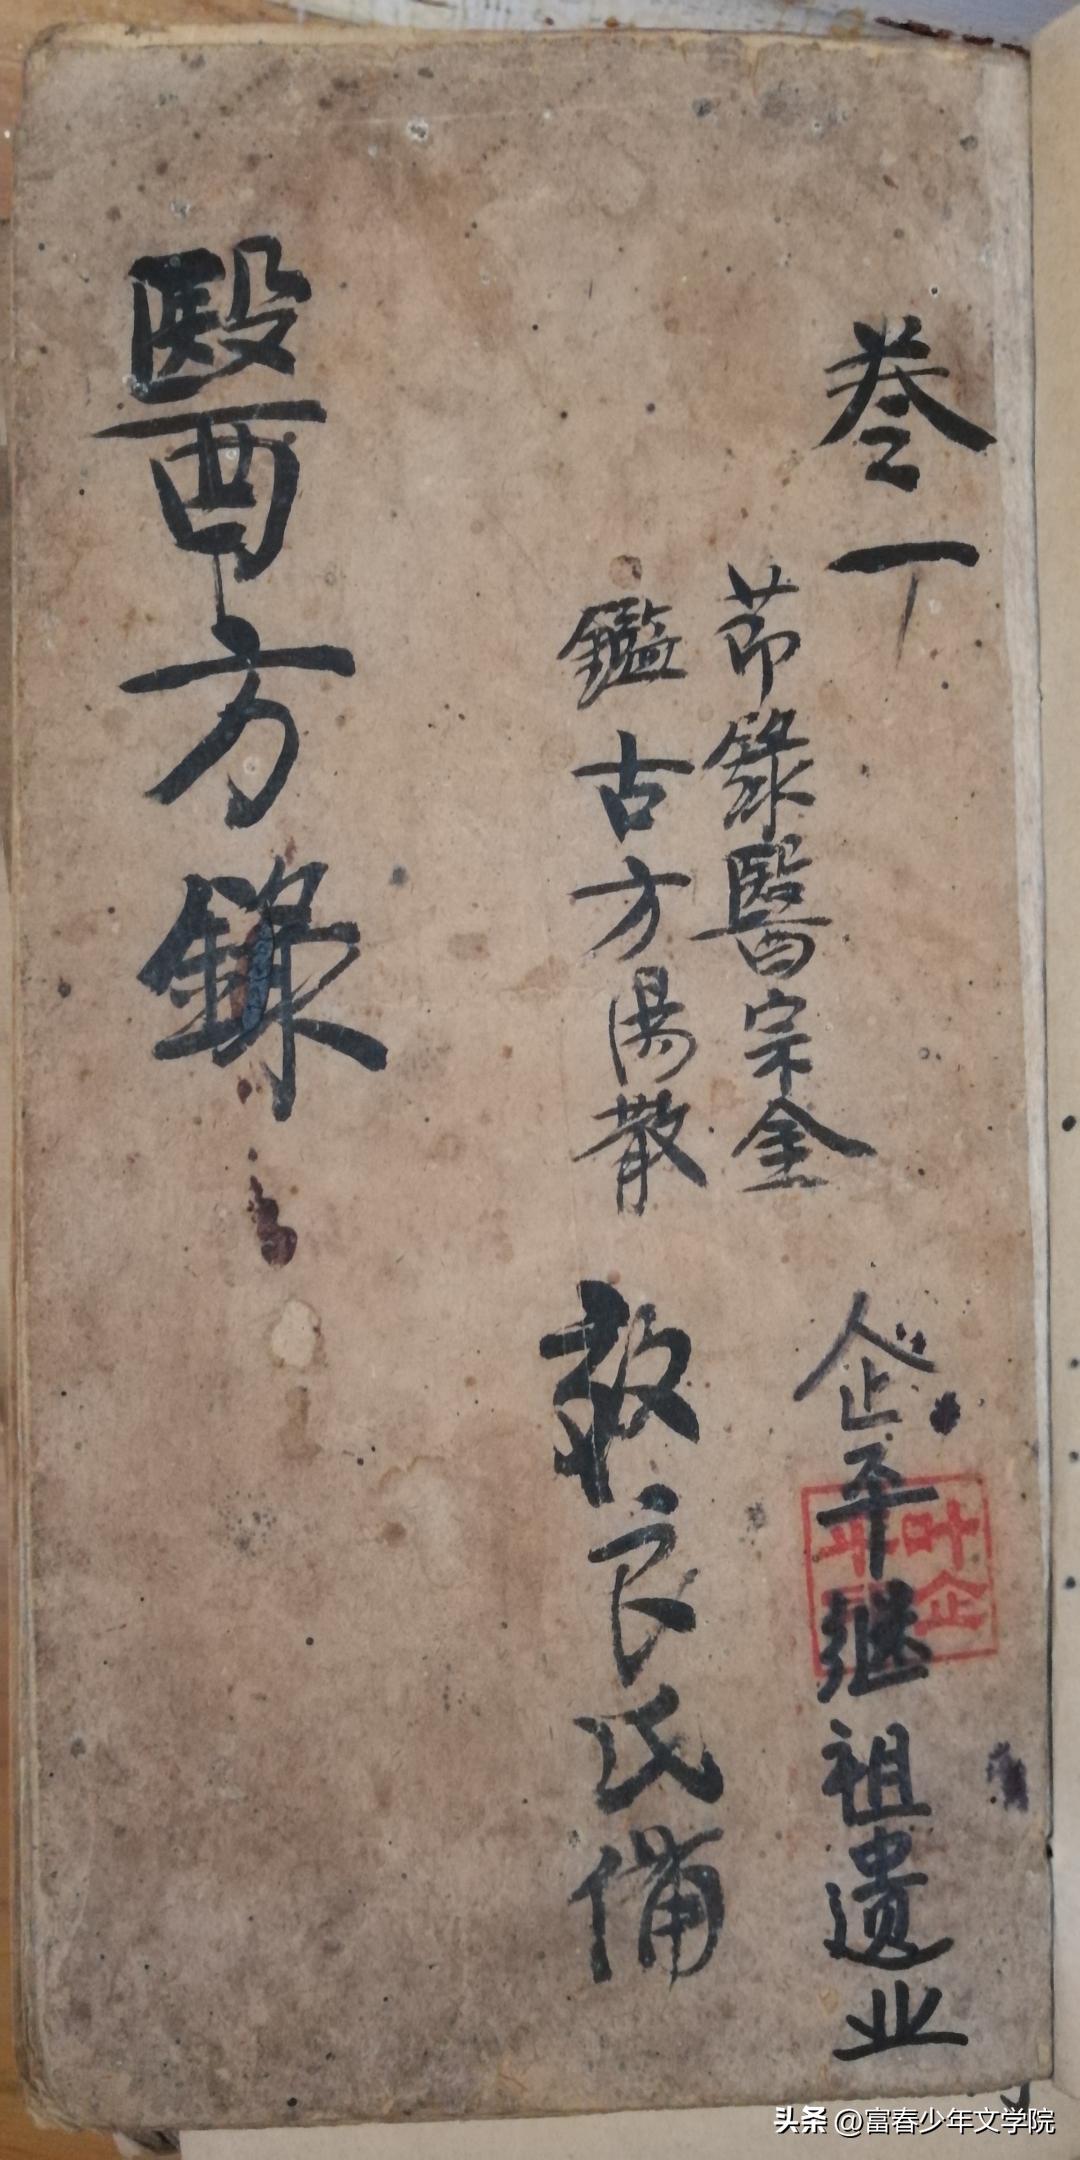 卷一
企平继祖遗业
莭錄醫宗金
鑑古方湯散
良氏備
醫方錄
叶企
平
头条 @富春少年文学院